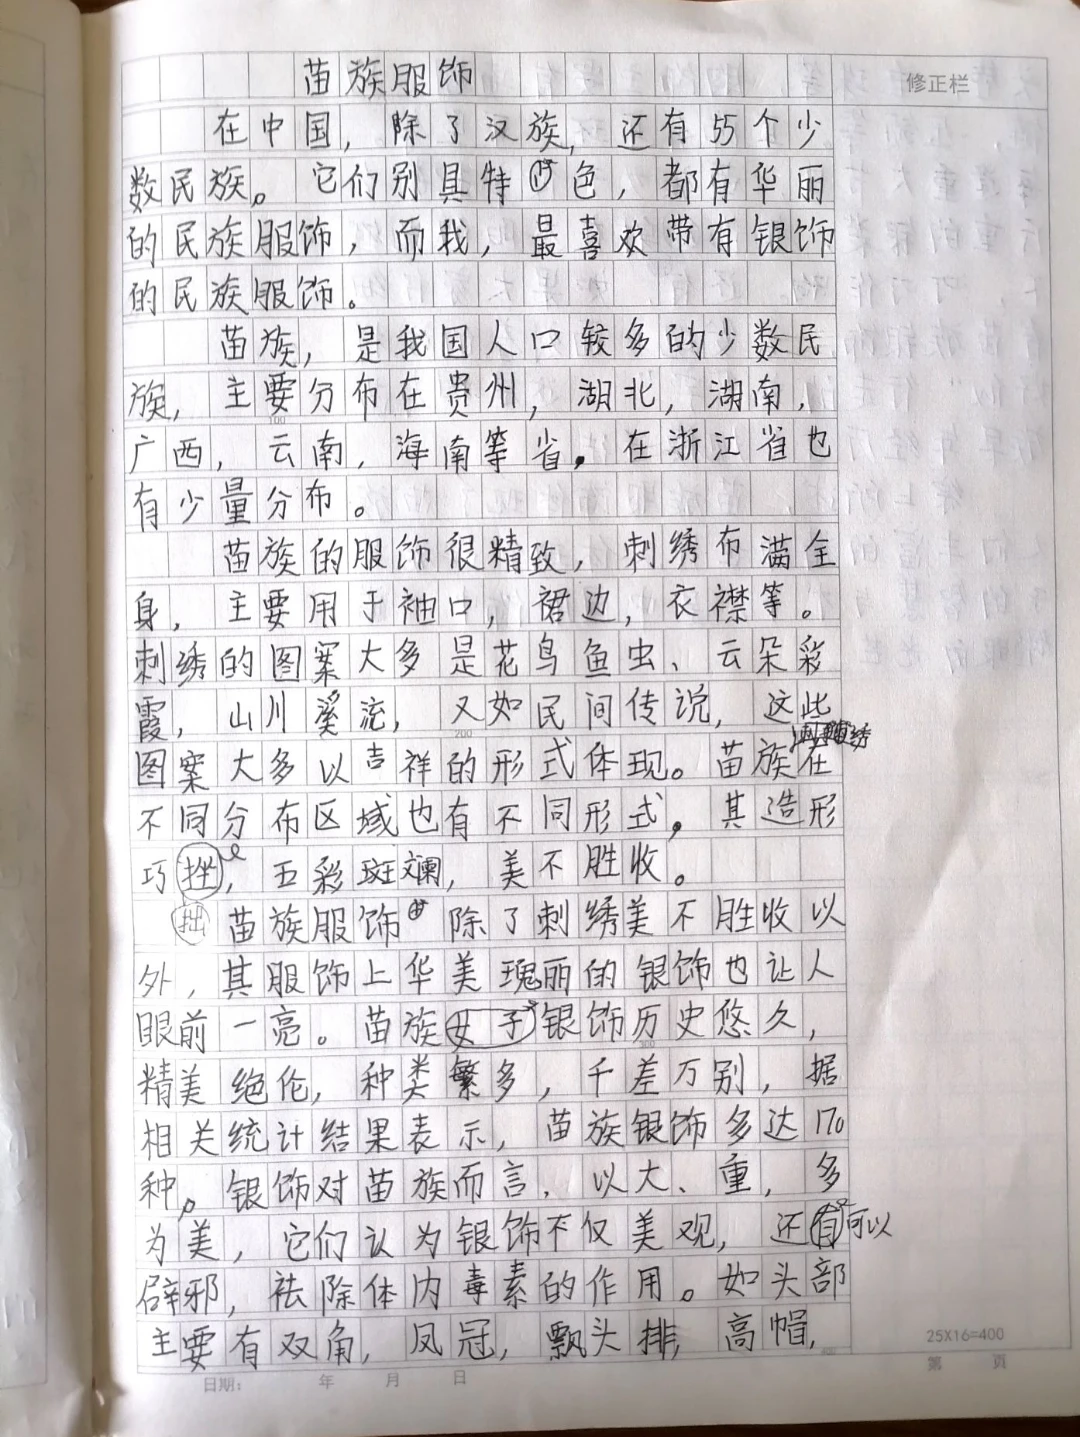 苗族服饰
修正栏
在中国，除了汉族，还有55个少
数民族。它们别具特色，都有华丽
的民族服饰，而我，最喜欢带有银饰
的民族服饰。
苗族，是我国人口较多的少数民
族，主要分布在贵州，湖北，湖南，
100
广西，云南，海南等省。在浙江省也
有少量分布。
苗族的服饰很精致，刺绣布满全
身，主要用于袖口，裙边，衣襟等。
刺绣的图案大多是花鸟鱼虫、云朵彩
霞，山川溪流，又如民间传说，这些
200
刺绣
图案大多以吉祥的形式体现。苗族在
不同分布区域也有不同形式，其造形
巧挫，五彩斑斓，美不胜收。
拙
苗族服饰除了刺绣美不胜收以
外，其服饰上华美瑰丽的银饰也让人
眼前一亮。苗族女子银饰历史悠久，
300
精美绝伦，种类繁多，千差万别，据
相关统计结果表示，苗族银饰多达170
种。银饰对苗族而言，以大、重，多
为美，它们认为银饰不仅美观，还有可以
辟邪，祛除体内毒素的作用。如头部
主要有双角，凤冠，飘头排，高帽，
25X16=400
日期： 年 月 日
第 页